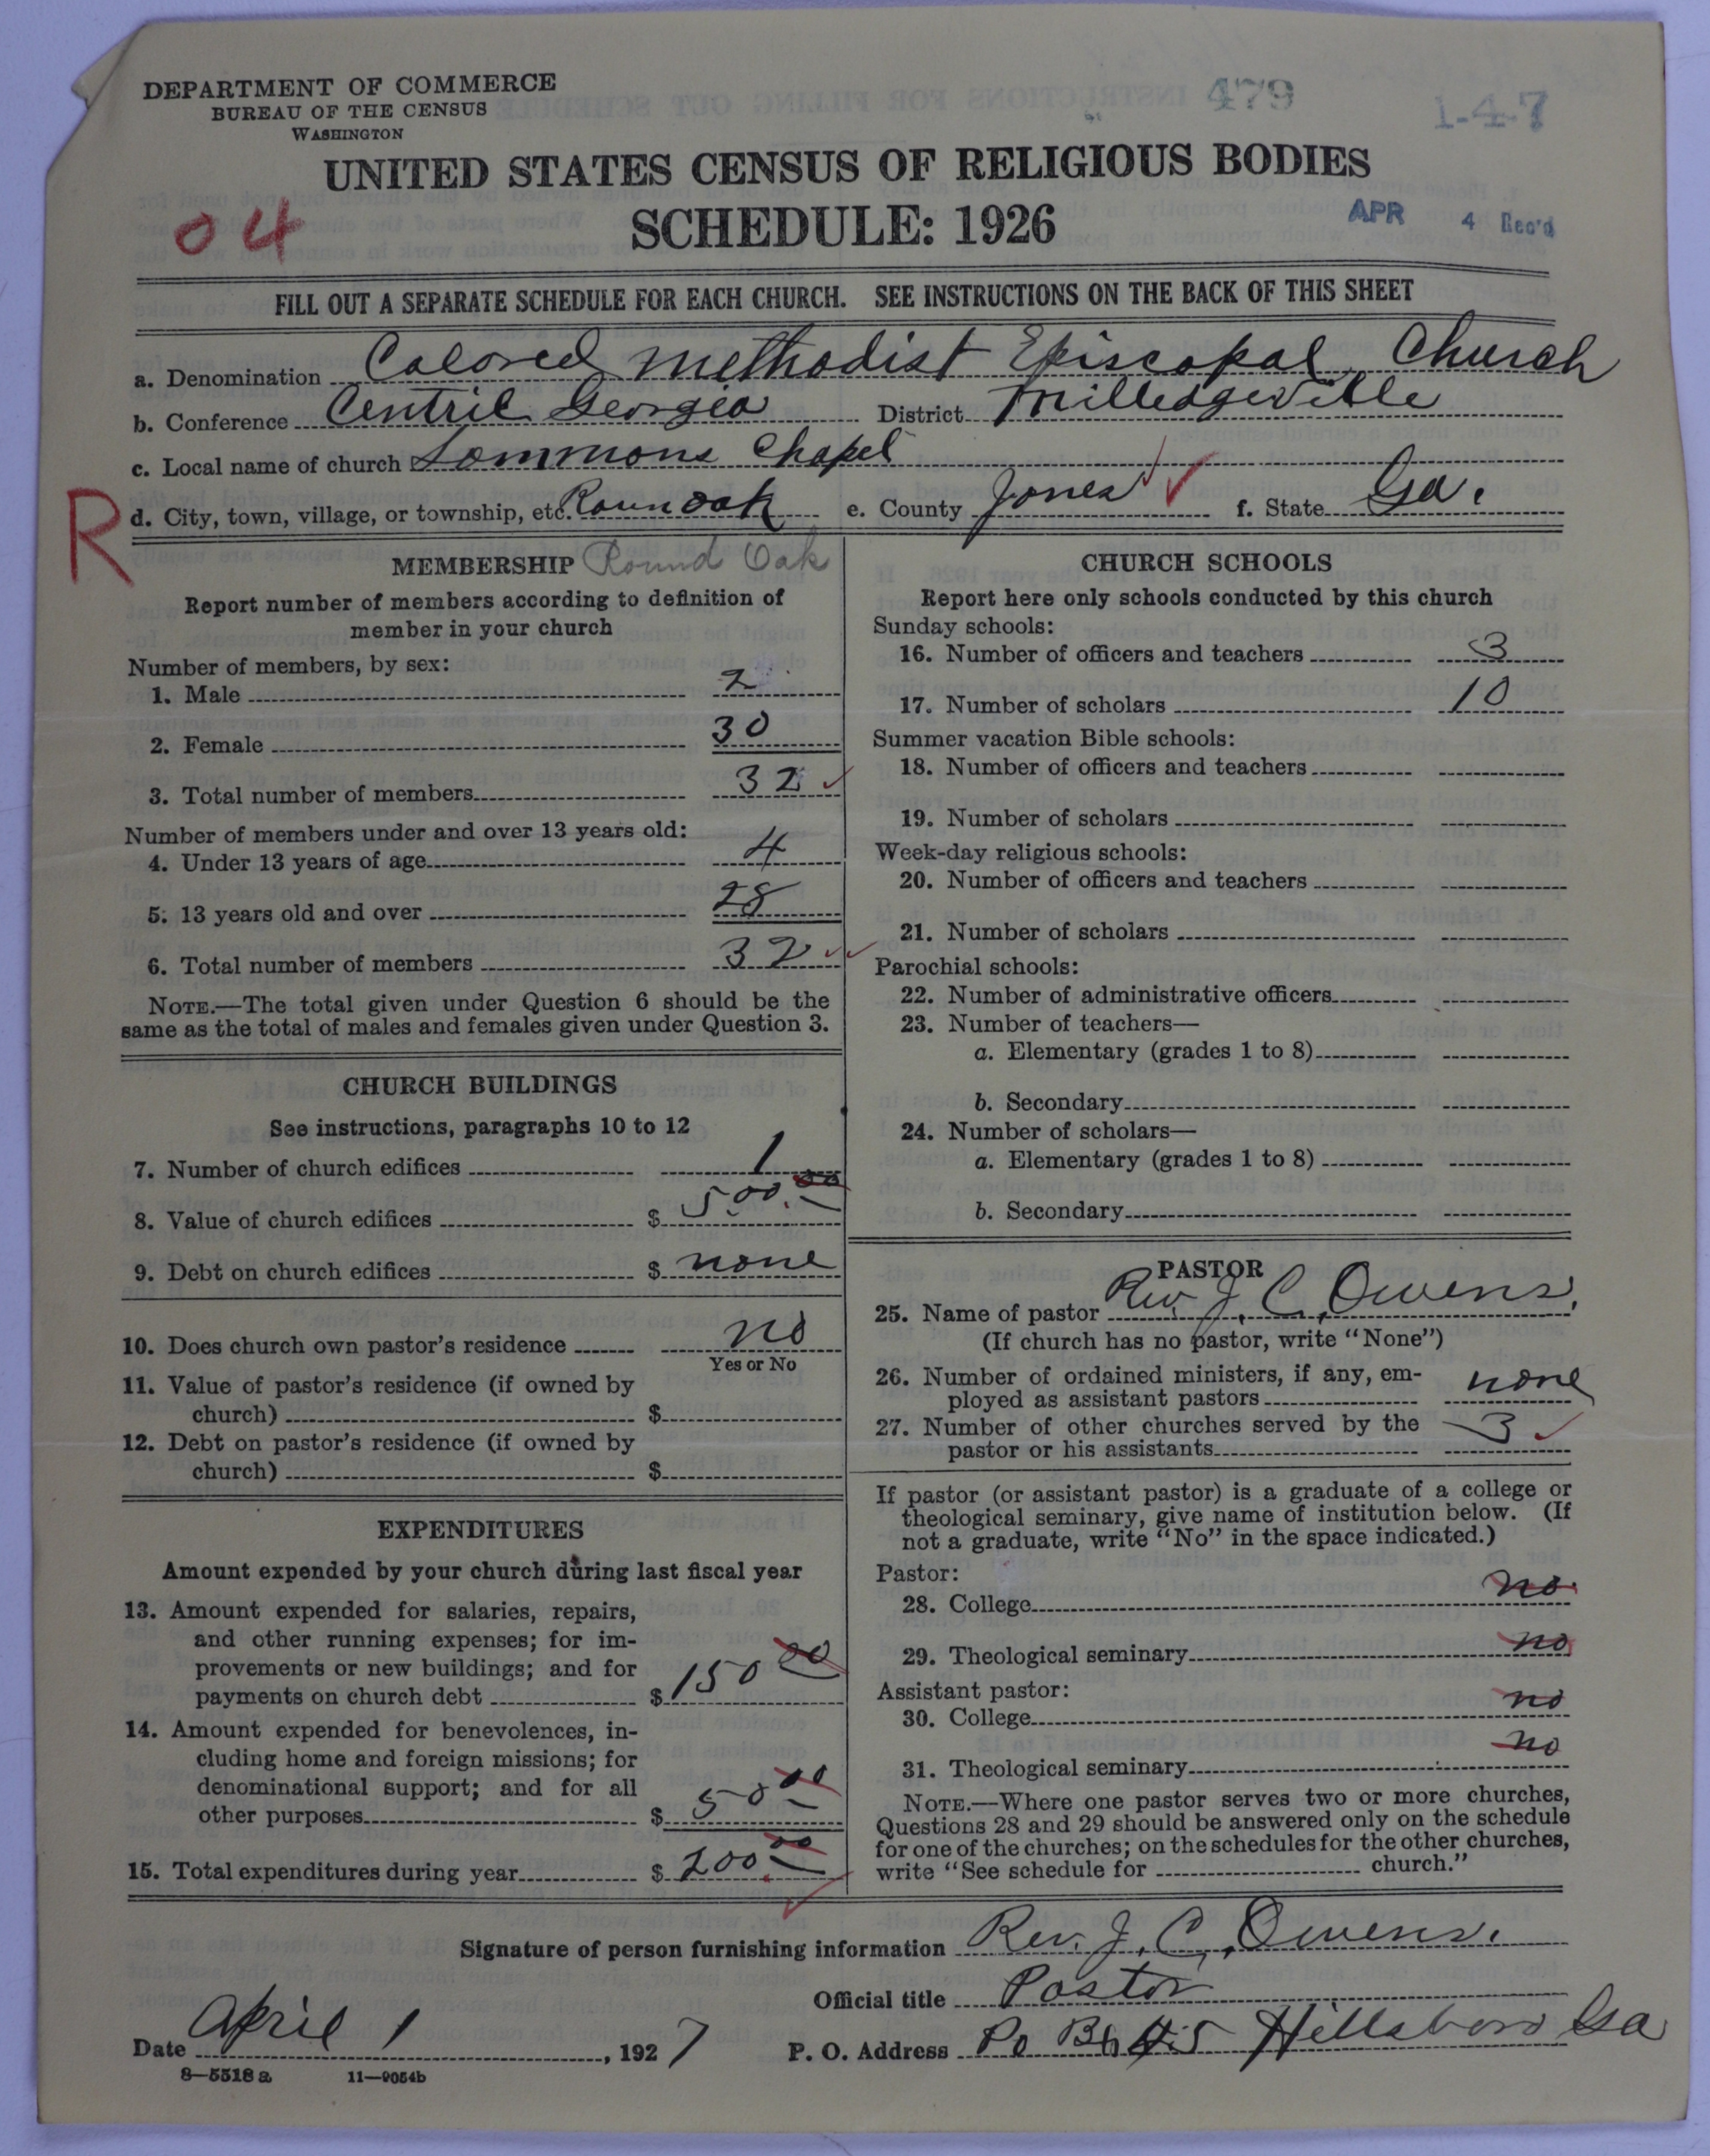 DEPARTMENT OF COMMERCE
BUREAU OF THE CENSUS
WASHINGTON
479
1-4-7
UNITED STATES CENSUS OF RELIGIOUS BODIES
04
SCHEDULE: 1926
APR 4 Rec'd
FILL OUT A SEPARATE SCHEDULE FOR EACH CHURCH. SEE INSTRUCTIONS ON THE BACK OF THIS SHEET
a. Denomination Colored Methodist Episcopal Church
b. Conference Centril Georgia District Milledgeville
c. Local name of church Sommons Chapel
R
d. City, town, village, or township, etc. Roun oak e. County Jones f. State Ga.
MEMBERSHIP Round Oak
Report number of members according to definition of
member in your church
Number of members, by sex:
1. Male 2
2. Female 30
3. Total number of members 32
Number of members under and over 13 years old:
4. Under 13 years of age 4
5. 13 years old and over 28
6. Total number of members 32
NOTE.—The total given under Question 6 should be the
same as the total of males and females given under Question 3.
CHURCH BUILDINGS
See instructions, paragraphs 10 to 12
7. Number of church edifices 1
8. Value of church edifices $ 500.00
9. Debt on church edifices $ none
10. Does church own pastor's residence no
Yes or No
11. Value of pastor's residence (if owned by
church) $
12. Debt on pastor's residence (if owned by
church) $
EXPENDITURES
Amount expended by your church during last fiscal year
13. Amount expended for salaries, repairs,
and other running expenses; for im-
provements or new buildings; and for
payments on church debt $ 150 00
14. Amount expended for benevolences, in-
cluding home and foreign missions; for
denominational support; and for all
other purposes $ 50 00
15. Total expenditures during year $ 200.00
CHURCH SCHOOLS
Report here only schools conducted by this church
Sunday schools:
16. Number of officers and teachers 3
17. Number of scholars 10
Summer vacation Bible schools:
18. Number of officers and teachers
19. Number of scholars
Week-day religious schools:
20. Number of officers and teachers
21. Number of scholars
Parochial schools:
22. Number of administrative officers
23. Number of teachers—
a. Elementary (grades 1 to 8)
b. Secondary
24. Number of scholars—
a. Elementary (grades 1 to 8)
b. Secondary
PASTOR
25. Name of pastor Rev. J. C. Owens.
(If church has no pastor, write "None")
26. Number of ordained ministers, if any, em-
ployed as assistant pastors none
27. Number of other churches served by the
pastor or his assistants 3
If pastor (or assistant pastor) is a graduate of a college or
theological seminary, give name of institution below. (If
not a graduate, write "No" in the space indicated.)
Pastor:
28. College no.
29. Theological seminary no
Assistant pastor:
30. College no
31. Theological seminary no
NOTE.—Where one pastor serves two or more churches,
Questions 28 and 29 should be answered only on the schedule
for one of the churches; on the schedules for the other churches,
write "See schedule for church."
Signature of person furnishing information Rev. J. C. Owens.
Official title Pastor
Date April 1, 1927 P. O. Address Po 45 Hillsboro Ga
8—5518 a 11—9054b